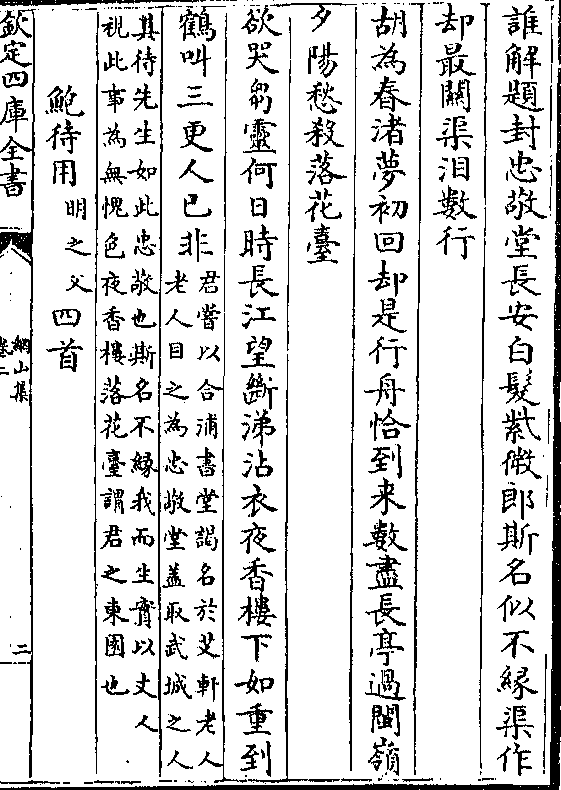 誰解題封忠敬堂長安白髮紫微郎斯名似不緣渠作
却最關渠泪數行
胡為春渚夢初回却是行舟恰到來數盡長亭過閩嶺
夕陽愁殺落花臺
欲哭芻靈何日時長江望斷涕沾衣夜香樓下如重到
鶴叫三更人已非
君嘗以合浦書堂謁名於艾軒老人
老人目之為忠敬堂盖取武城之人
其待先生如此忠敬也斯名不緣我而生實以丈人
視此事為無愧色夜香樓落花臺謂君之東園也
鮑待用明之父四首
欽定四庫全書
網山集
卷二
二